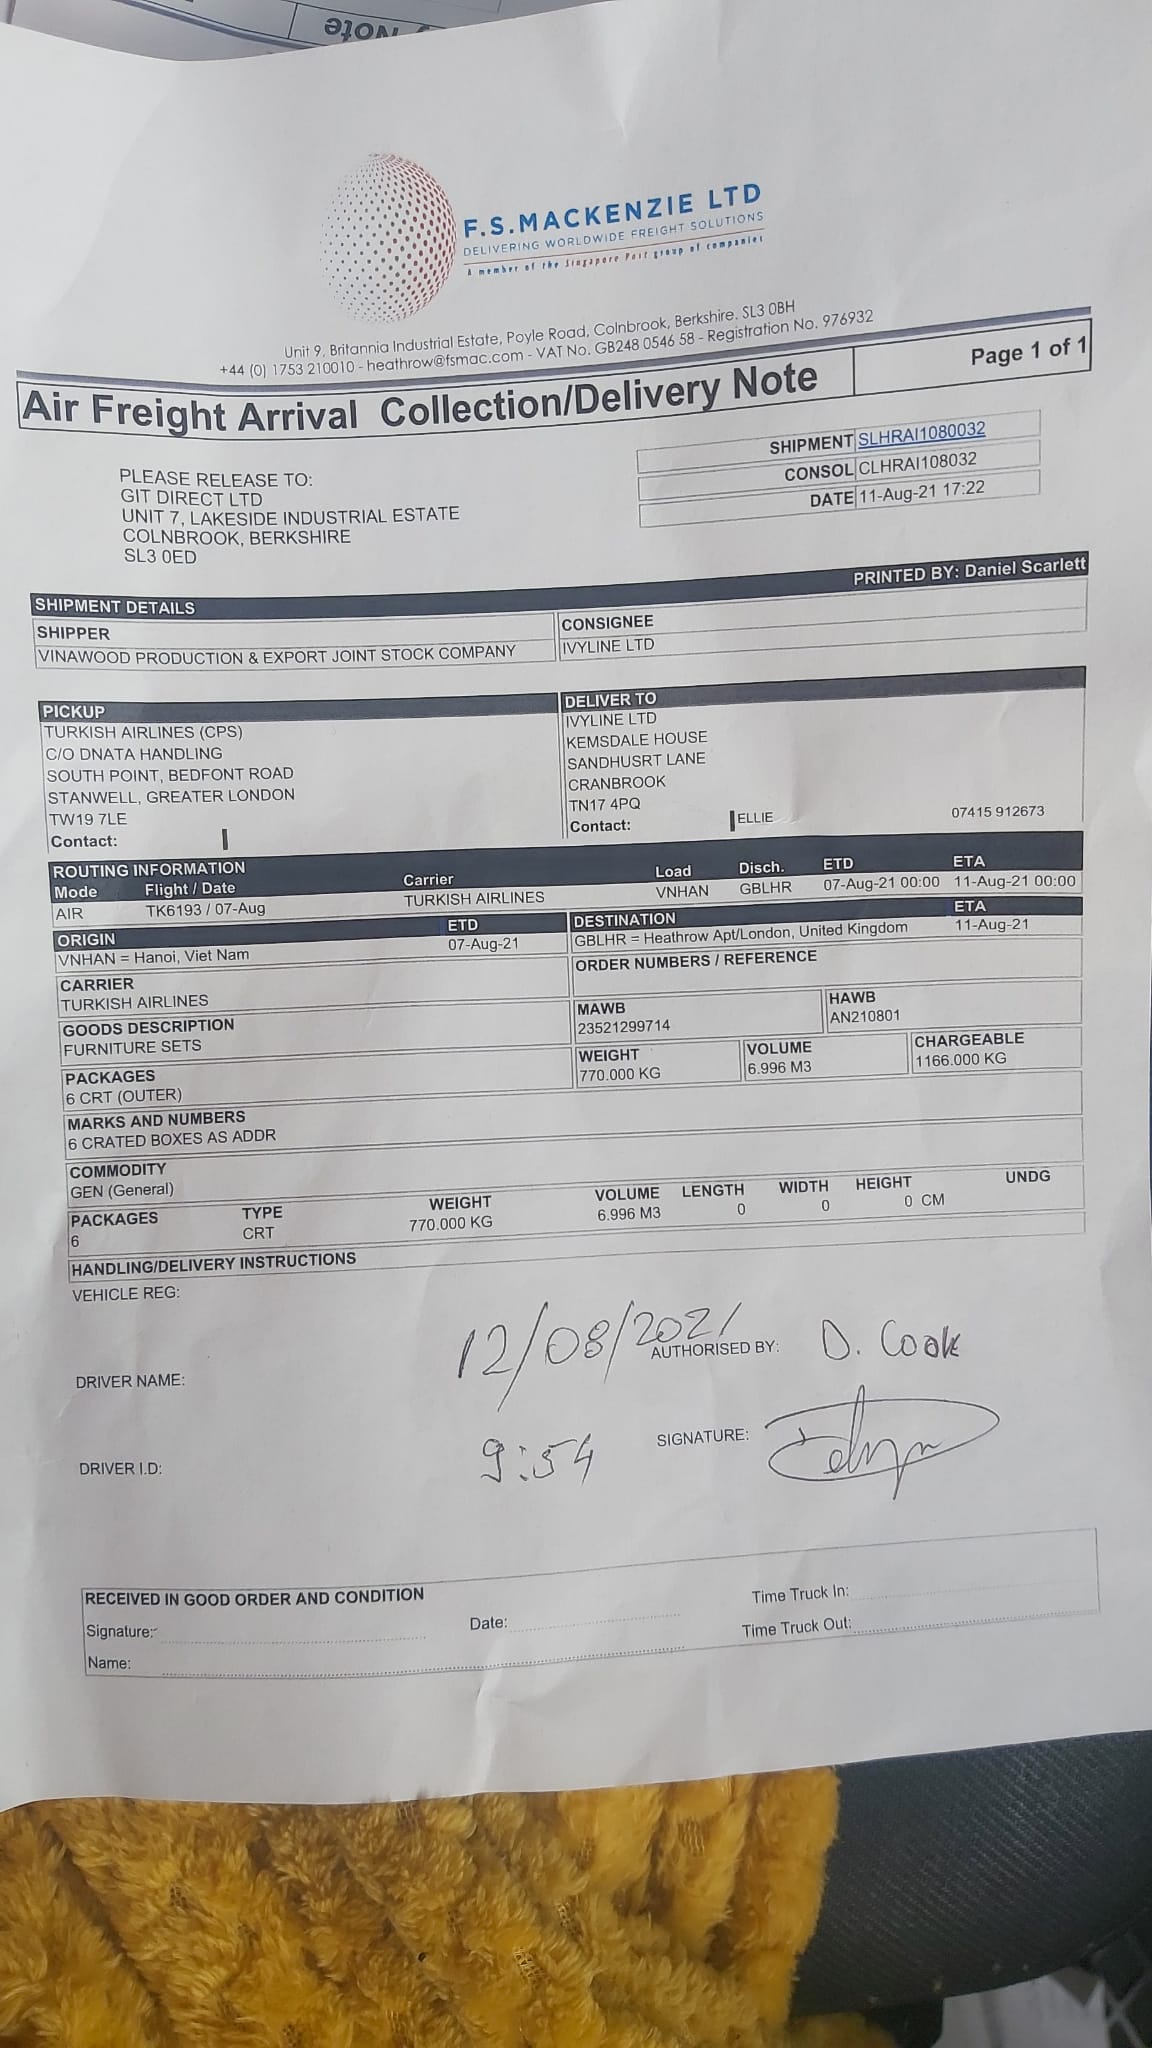 Note
F.S.MACKENZIE LTD
DELIVERING WORLDWIDE FREIGHT SOLUTIONS
A member of the Singapore Post group of companies
Unit 9, Britannia Industrial Estate, Poyle Road, Colnbrook, Berkshire. SL3 0BH
+44 (0) 1753 210010 - heathrow@fsmac.com - VAT No. GB248 0546 58 - Registration No. 976932
Air Freight Arrival Collection/Delivery Note
Page 1 of 1
SHIPMENT SLHRAI1080032
CONSOL CLHRAI108032
DATE 11-Aug-21 17:22
PLEASE RELEASE TO:
GIT DIRECT LTD
UNIT 7, LAKESIDE INDUSTRIAL ESTATE
COLNBROOK, BERKSHIRE
SL3 0ED
PRINTED BY: Daniel Scarlett
SHIPMENT DETAILS
SHIPPER CONSIGNEE
VINAWOOD PRODUCTION & EXPORT JOINT STOCK COMPANY IVYLINE LTD
PICKUP
TURKISH AIRLINES (CPS)
C/O DNATA HANDLING
SOUTH POINT, BEDFONT ROAD
STANWELL, GREATER LONDON
TW19 7LE
Contact:
DELIVER TO
IVYLINE LTD
KEMSDALE HOUSE
SANDHUSRT LANE
CRANBROOK
TN17 4PQ
Contact: ELLIE 07415 912673
ROUTING INFORMATION
Mode Flight / Date Carrier Load Disch. ETD ETA
AIR TK6193 / 07-Aug TURKISH AIRLINES VNHAN GBLHR 07-Aug-21 00:00 11-Aug-21 00:00
ORIGIN ETD DESTINATION ETA
VNHAN = Hanoi, Viet Nam 07-Aug-21 GBLHR = Heathrow Apt/London, United Kingdom 11-Aug-21
CARRIER ORDER NUMBERS / REFERENCE
TURKISH AIRLINES
GOODS DESCRIPTION MAWB HAWB
FURNITURE SETS 23521299714 AN210801
PACKAGES WEIGHT VOLUME CHARGEABLE
6 CRT (OUTER) 770.000 KG 6.996 M3 1166.000 KG
MARKS AND NUMBERS
6 CRATED BOXES AS ADDR
COMMODITY
GEN (General)
PACKAGES TYPE WEIGHT VOLUME LENGTH WIDTH HEIGHT UNDG
6 CRT 770.000 KG 6.996 M3 0 0 0 CM
HANDLING/DELIVERY INSTRUCTIONS
VEHICLE REG:
12/08/2021
AUTHORISED BY: D. Cook
DRIVER NAME:
9:54
SIGNATURE:
DRIVER I.D:
RECEIVED IN GOOD ORDER AND CONDITION
Signature: Date: Time Truck In:
Name: Time Truck Out: